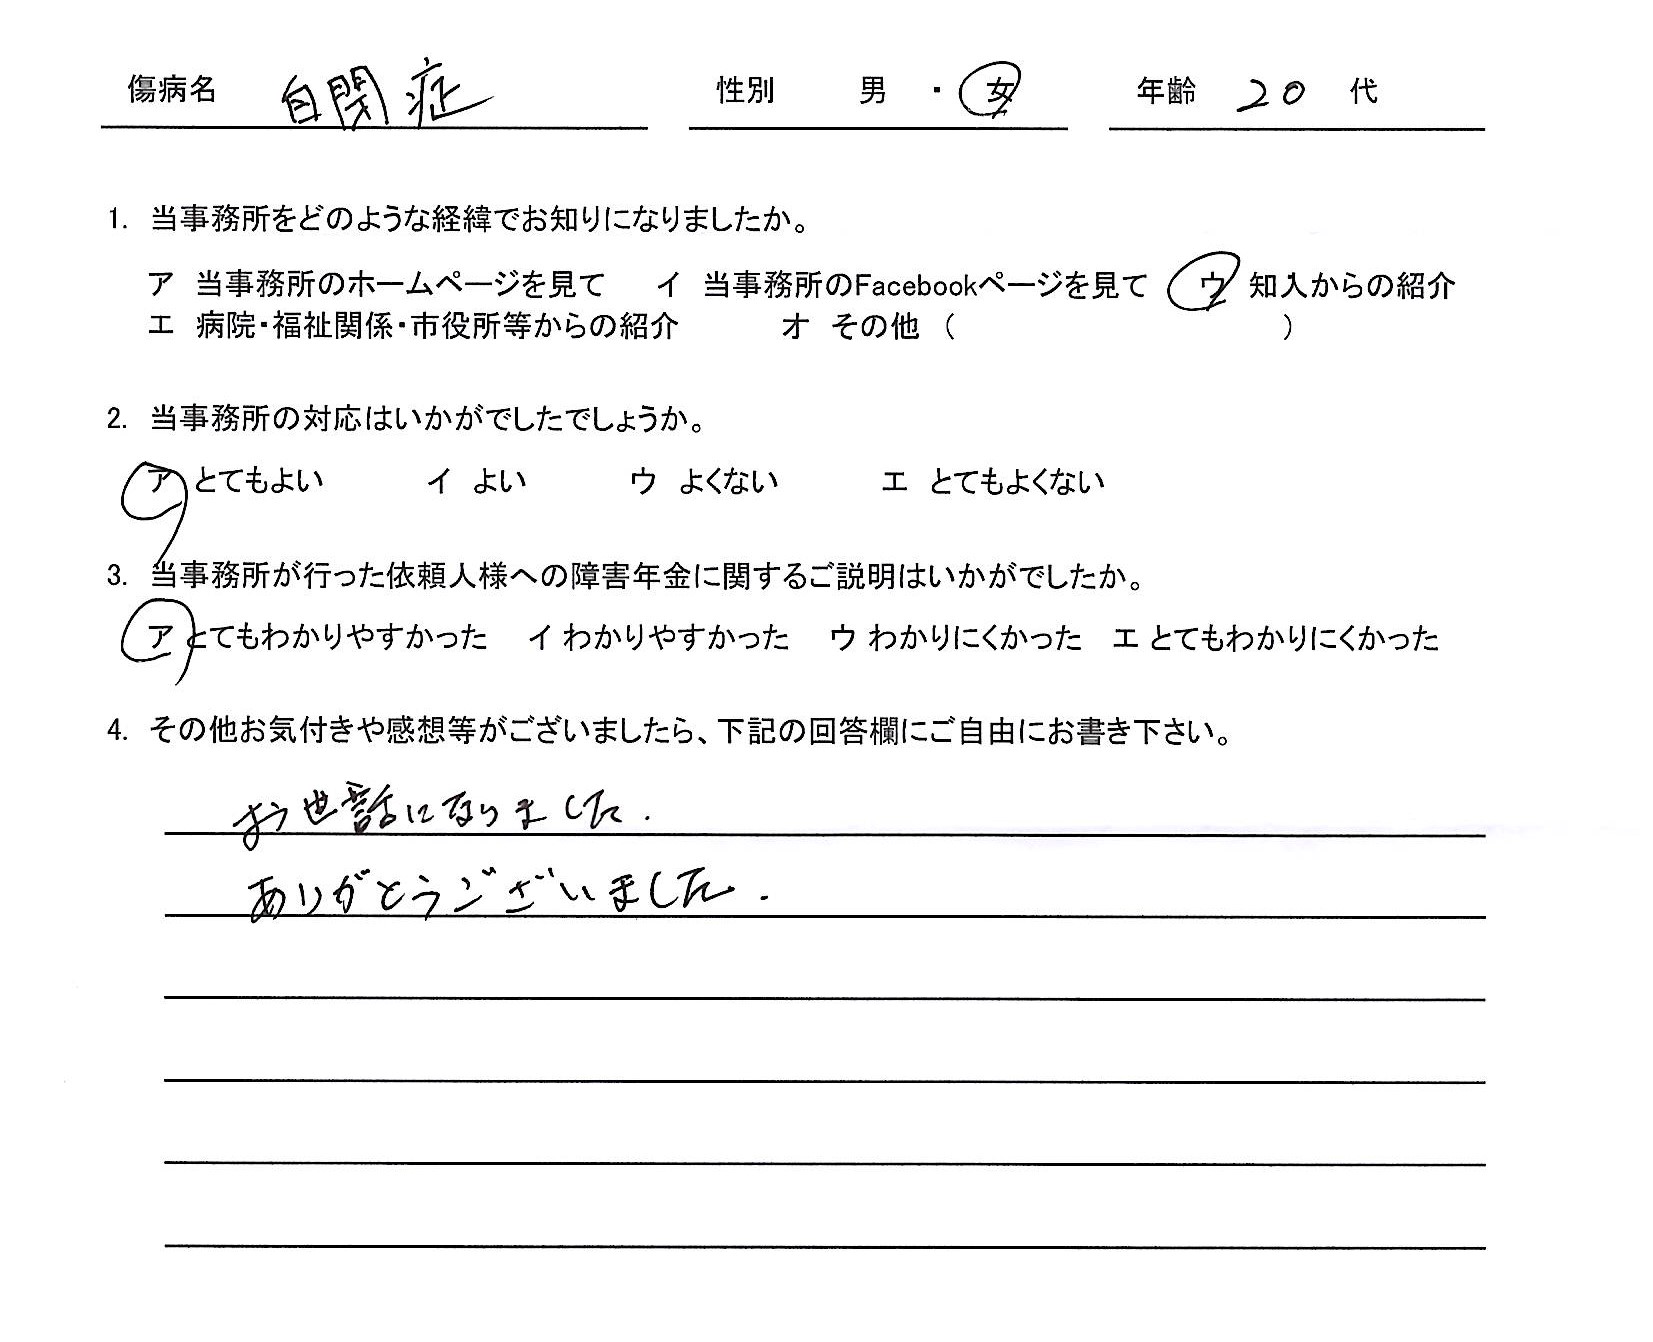 傷病名 自閉症 性別 男 ・ 女 年齢 20 代
1. 当事務所をどのような経緯でお知りになりましたか。
ア 当事務所のホームページを見て イ 当事務所のFacebookページを見て ウ 知人からの紹介
エ 病院・福祉関係・市役所等からの紹介 オ その他 ( )
2. 当事務所の対応はいかがでしたでしょうか。
ア とてもよい イ よい ウ よくない エ とてもよくない
3. 当事務所が行った依頼人様への障害年金に関するご説明はいかがでしたか。
ア とてもわかりやすかった イ わかりやすかった ウ わかりにくかった エ とてもわかりにくかった
4. その他お気付きや感想等がございましたら、下記の回答欄にご自由にお書き下さい。
お世話になりました.
ありがとうございました.